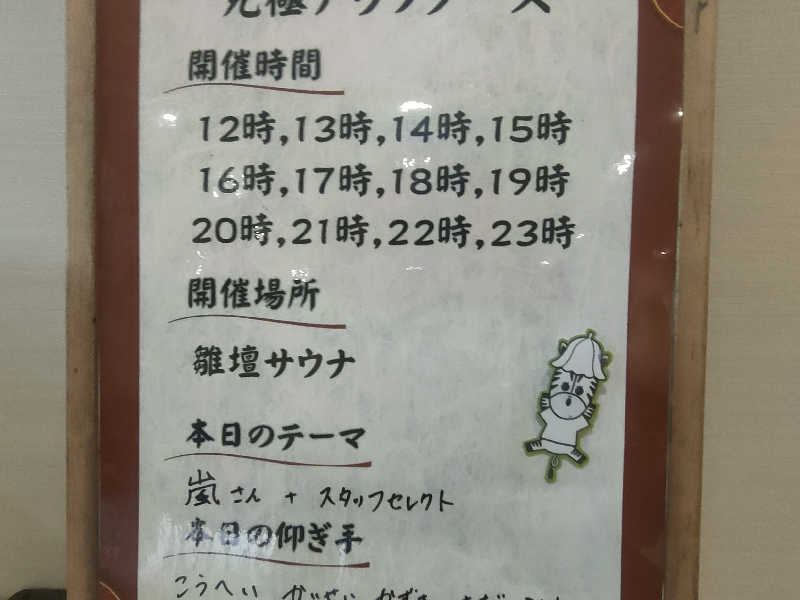 開催時間
12時,13時,14時,15時
16時,17時,18時,19時
20時,21時,22時,23時
開催場所
雛壇サウナ
本日のテーマ
嵐さん + スタッフセレクト
本日の仰ぎ手
こうへい